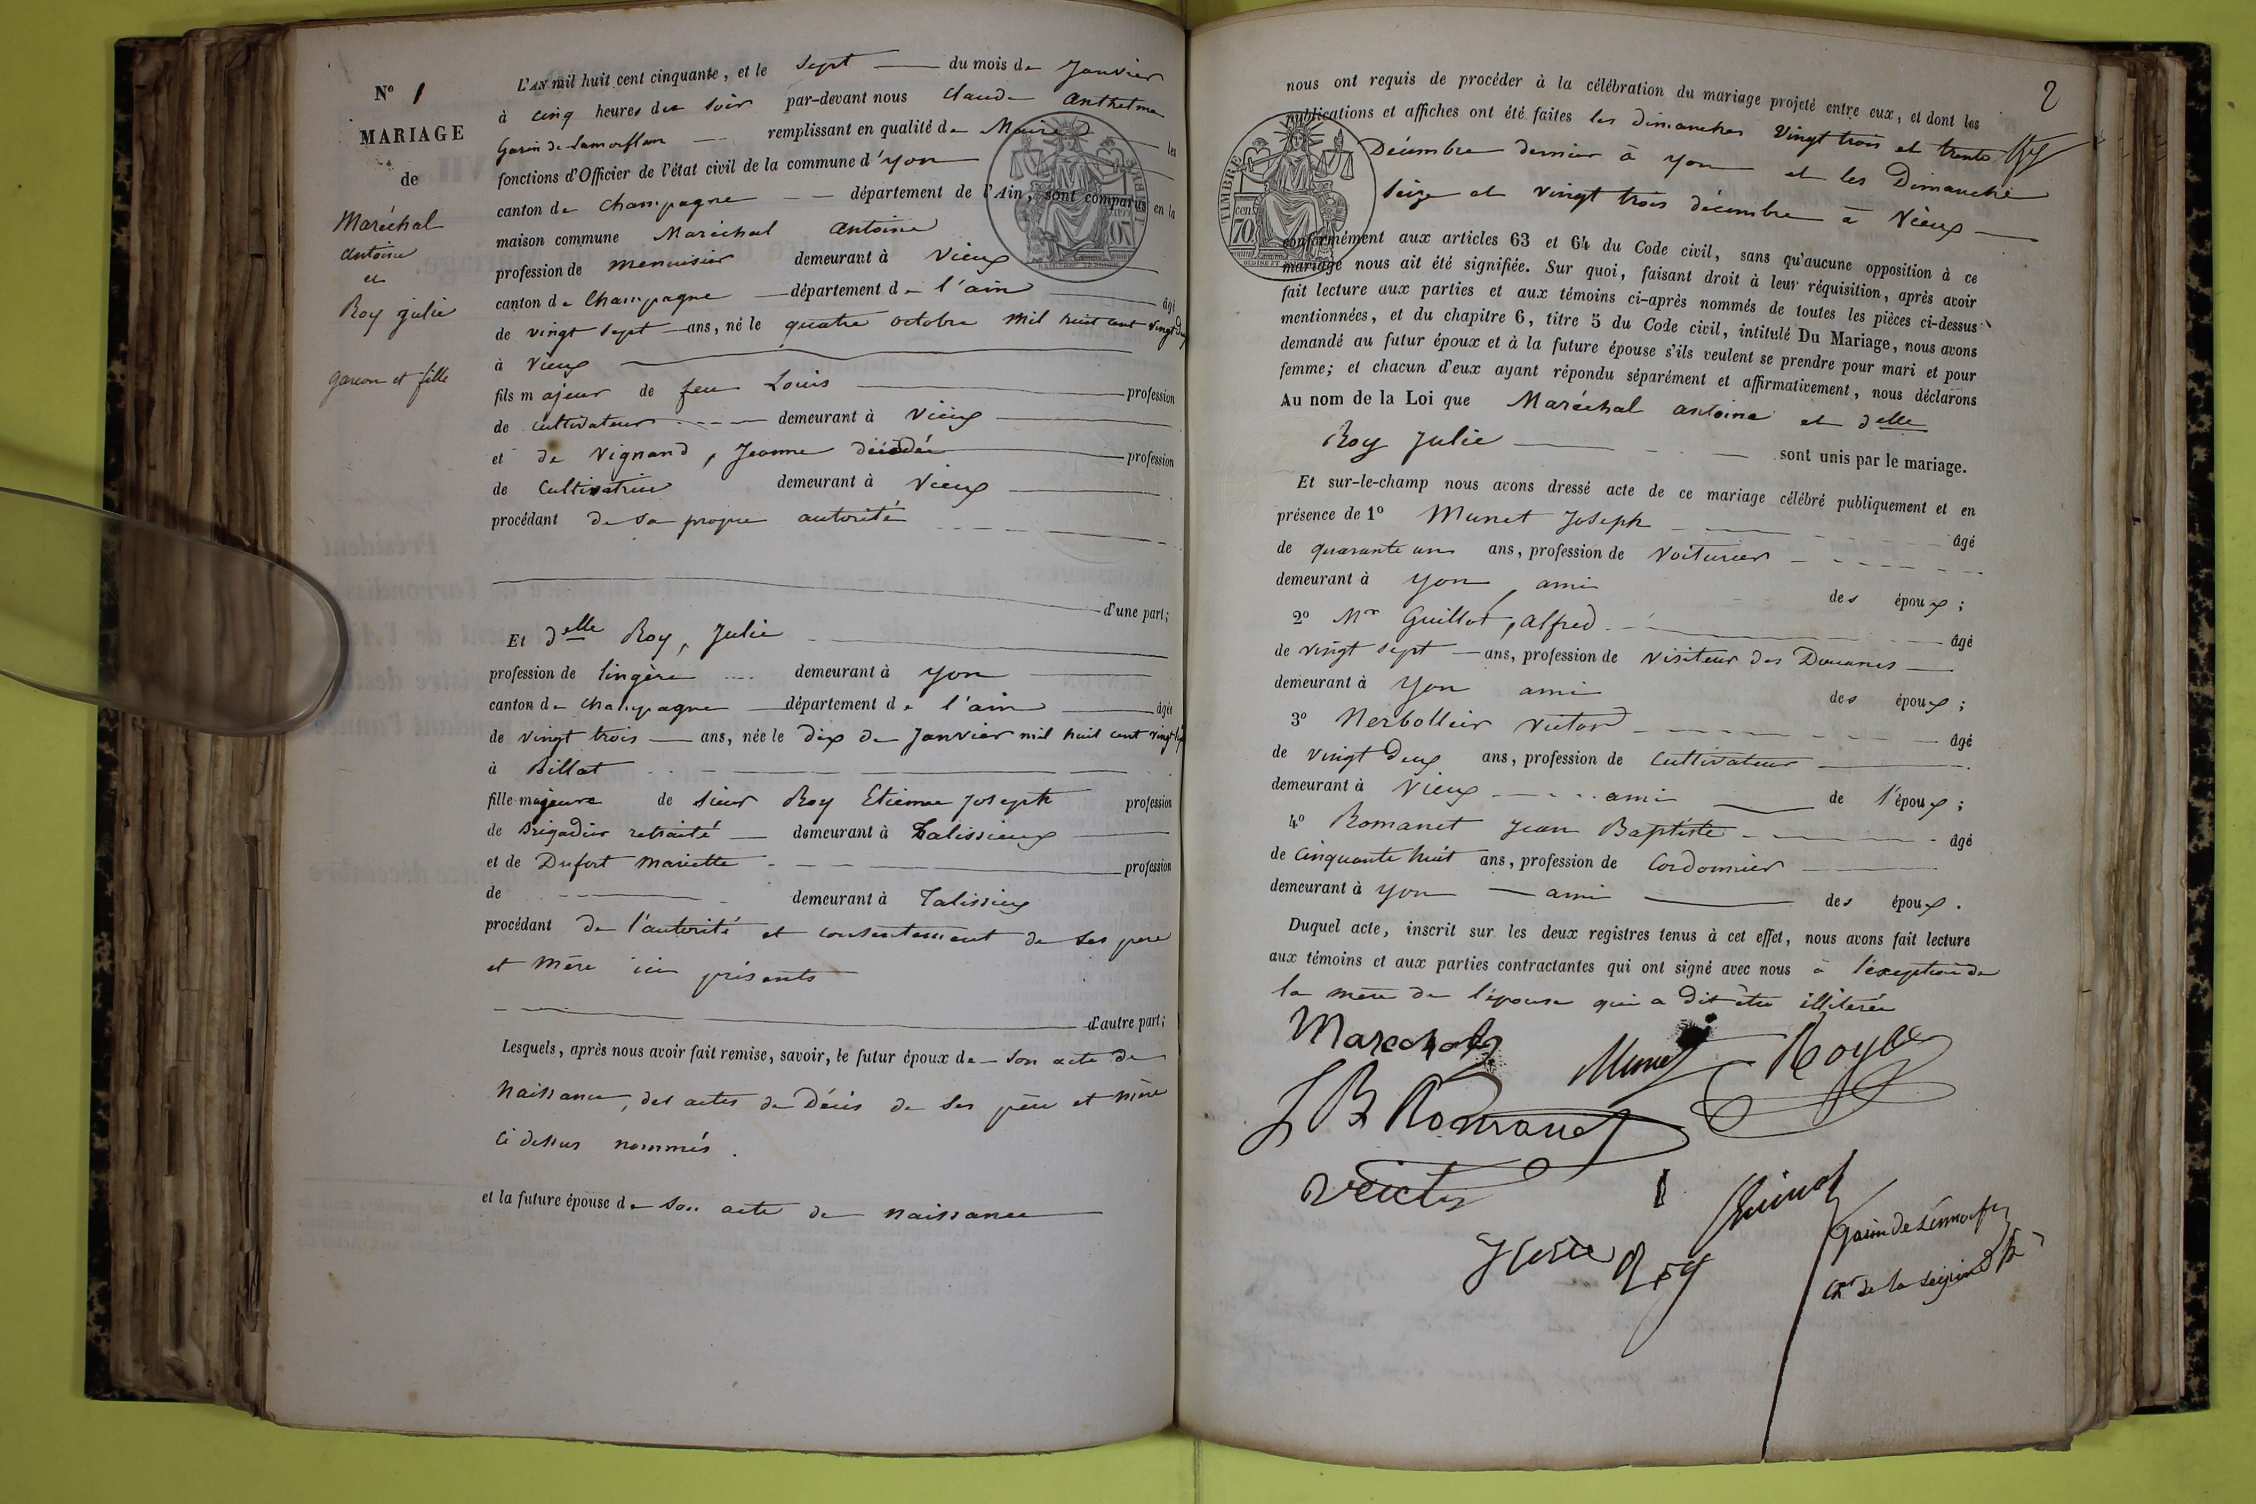 N° 1
MARIAGE
de
Maréchal
Antoine
et
Roy Julie
garcon et fille
L'AN mil huit cent cinquante, et le sept du mois de Janvier
à cinq heures du soir par-devant nous Claude Anthelme
Garin de Lamorflan remplissant en qualité de Maire les
fonctions d'Officier de l'état civil de la commune d'yon
canton de Champagne département de l'Ain, sont comparus en la
maison commune Maréchal Antoine
profession de menuisier demeurant à Vieux
canton de Champagne département de l'ain âgé
de vingt sept ans, né le quatre octobre mil huit cent vingt deux
à Vieux
fils majeur de feu Louis profession
de cultivateur demeurant à Vieux
et de Vignand, Jeanne décédée profession
de Cultivatrice demeurant à Vieux
procédant de sa propre autorité
d'une part;
Et delle Roy, Julie
profession de lingère demeurant à yon
canton de Champagne département de l'ain âgée
de vingt trois ans, née le dix de Janvier mil huit cent vingt sept
à Billat
fille majeure de sieur Roy Etienne Joseph profession
de Brigadier retraité demeurant à Talissieux
et de Dufort Mariette profession
de demeurant à Talissieux
procédant de l'autorité et consentement de ses père
et mère ici présents
d'autre part;
Lesquels, après nous avoir fait remise, savoir, le futur époux de son acte de
Naissance, des actes de Décès de ses père et mère
ci dessus nommés.
et la future épouse de son acte de naissance
2
nous ont requis de procéder à la célébration du mariage projeté entre eux, et dont les
publications et affiches ont été faites les dimanches Vingt trois et trente
Décembre dernier à yon et les Dimanche
seize et vingt trois décembre à Vieux
TIMBRE
cen.
70
conformément aux articles 63 et 64 du Code civil, sans qu'aucune opposition à ce
mariage nous ait été signifiée. Sur quoi, faisant droit à leur réquisition, après avoir
fait lecture aux parties et aux témoins ci-après nommés de toutes les pièces ci-dessus
mentionnées, et du chapitre 6, titre 5 du Code civil, intitulé Du Mariage, nous avons
demandé au futur époux et à la future épouse s'ils veulent se prendre pour mari et pour
femme; et chacun d'eux ayant répondu séparément et affirmativement, nous déclarons
Au nom de la Loi que Maréchal antoine et delle
Roy Julie sont unis par le mariage.
Et sur-le-champ nous avons dressé acte de ce mariage célébré publiquement et en
présence de 1° Munet Joseph âgé
de quarante un ans, profession de Voiturier
demeurant à yon ami des époux;
2° Mr Guillot, Alfred âgé
de vingt sept ans, profession de Visiteur des Douanes
demeurant à yon ami des époux;
3° Nerbollier Victor âgé
de vingt deux ans, profession de Cultivateur
demeurant à Vieux ami de l'époux;
4° Romanet Jean Baptiste âgé
de Cinquante huit ans, profession de Cordonnier
demeurant à yon ami des époux.
Duquel acte, inscrit sur les deux registres tenus à cet effet, nous avons fait lecture
aux témoins et aux parties contractantes qui ont signé avec nous à l'exception de
la mère de l'épouse qui a dit être illiterée
Marechal
Munet
Roy
J B Romanet
Julie Roy